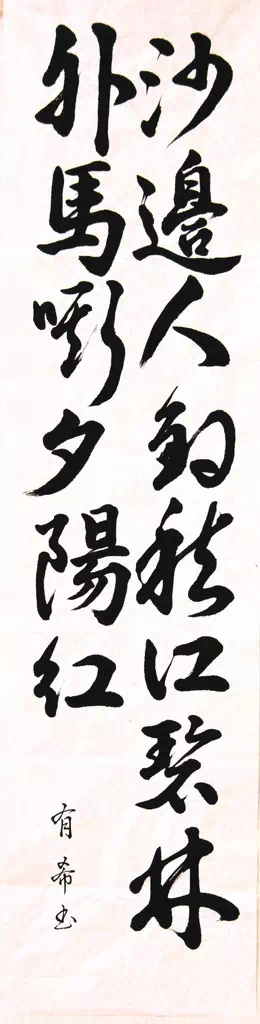 沙邊人釣秋江碧林
外馬嘶夕陽紅
有希書